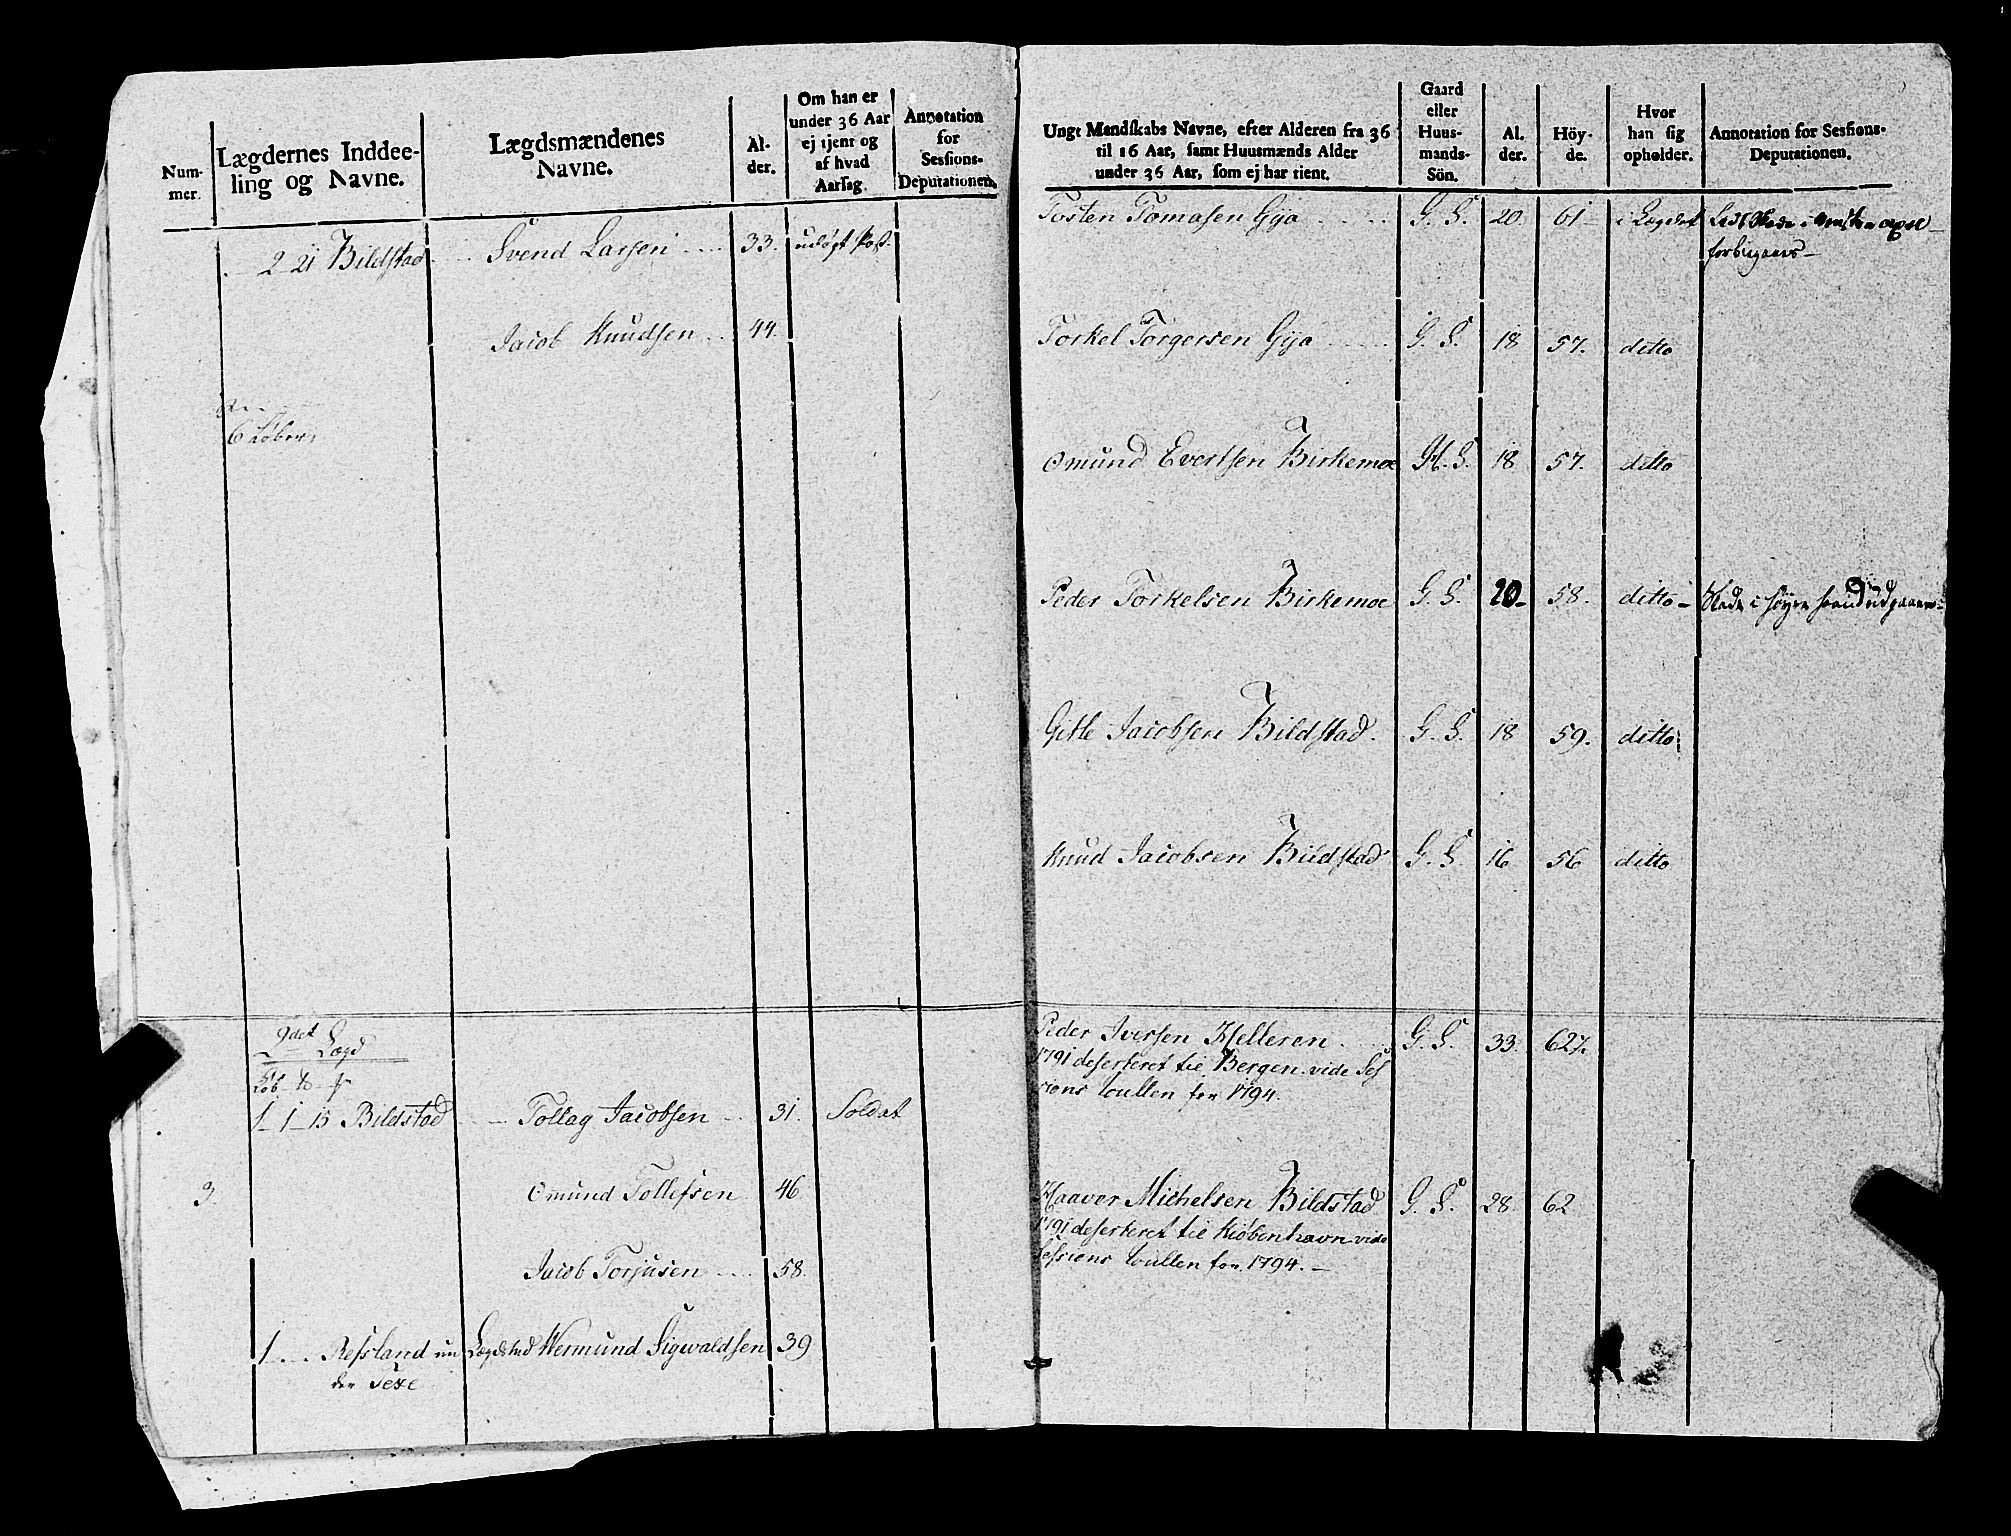 Num-
mer.
Lægdernes Inddee-
ling og Navne.
Lægdsmændenes
Navne.
Al-
der.
Om han er
under 36 Aar
ej tjent og
af hvad
Aarsag
Annotation
for
Sessions-
Deputationen.
2 21 Bildstad Svend Larsen 33. udløgt
Jacob Knudsen 44.
6 Løber
9det Lægd
Løb
1 - 1 - 15 Bildstad Tollag Jacobsen 31. Soldat
3. Omund Tollefsen 46
Jacob Torjusen 58.
1 Refsland un Wermund Sigwaldsen 39
der
Ungt Mandskabs Navne, efter Alderen fra 36
til 16 Aar, samt Huusmænds Alder
under 36 Aar, som ej har tient.
Gaard
eller
Huus-
mands-
Sön.
Al-
der.
Höy-
de.
Hvor
han sig
opholder.
Annotation for Sessions-
Deputationen.
Tosten Tomasen Gya G. S. 20 61 i Lægdet
forbigaaes
Torkel Torgersen Gya G. S. 18 57. ditto
Omund Evertsen Birkemoe H. S. 18 57. ditto
Peder Torkelsen Birkemoe G. S. 20 58. ditto Skade i høyre haand udgaaer
Gitle Jacobsen Bildstad. G. S. 18 59. ditto
Knud Jacobsen Bildstad G. S. 16 56 ditto
Peder Iversen Helleren G. S. 33. 62
1791 deserteret til Bergen vide Ses
sions Rullen for 1794.
Haaver Michelsen Bildstad G. S. 28. 62
1791 deserteret til Kiøbenhavn vide
Sessions Rullen for 1794.